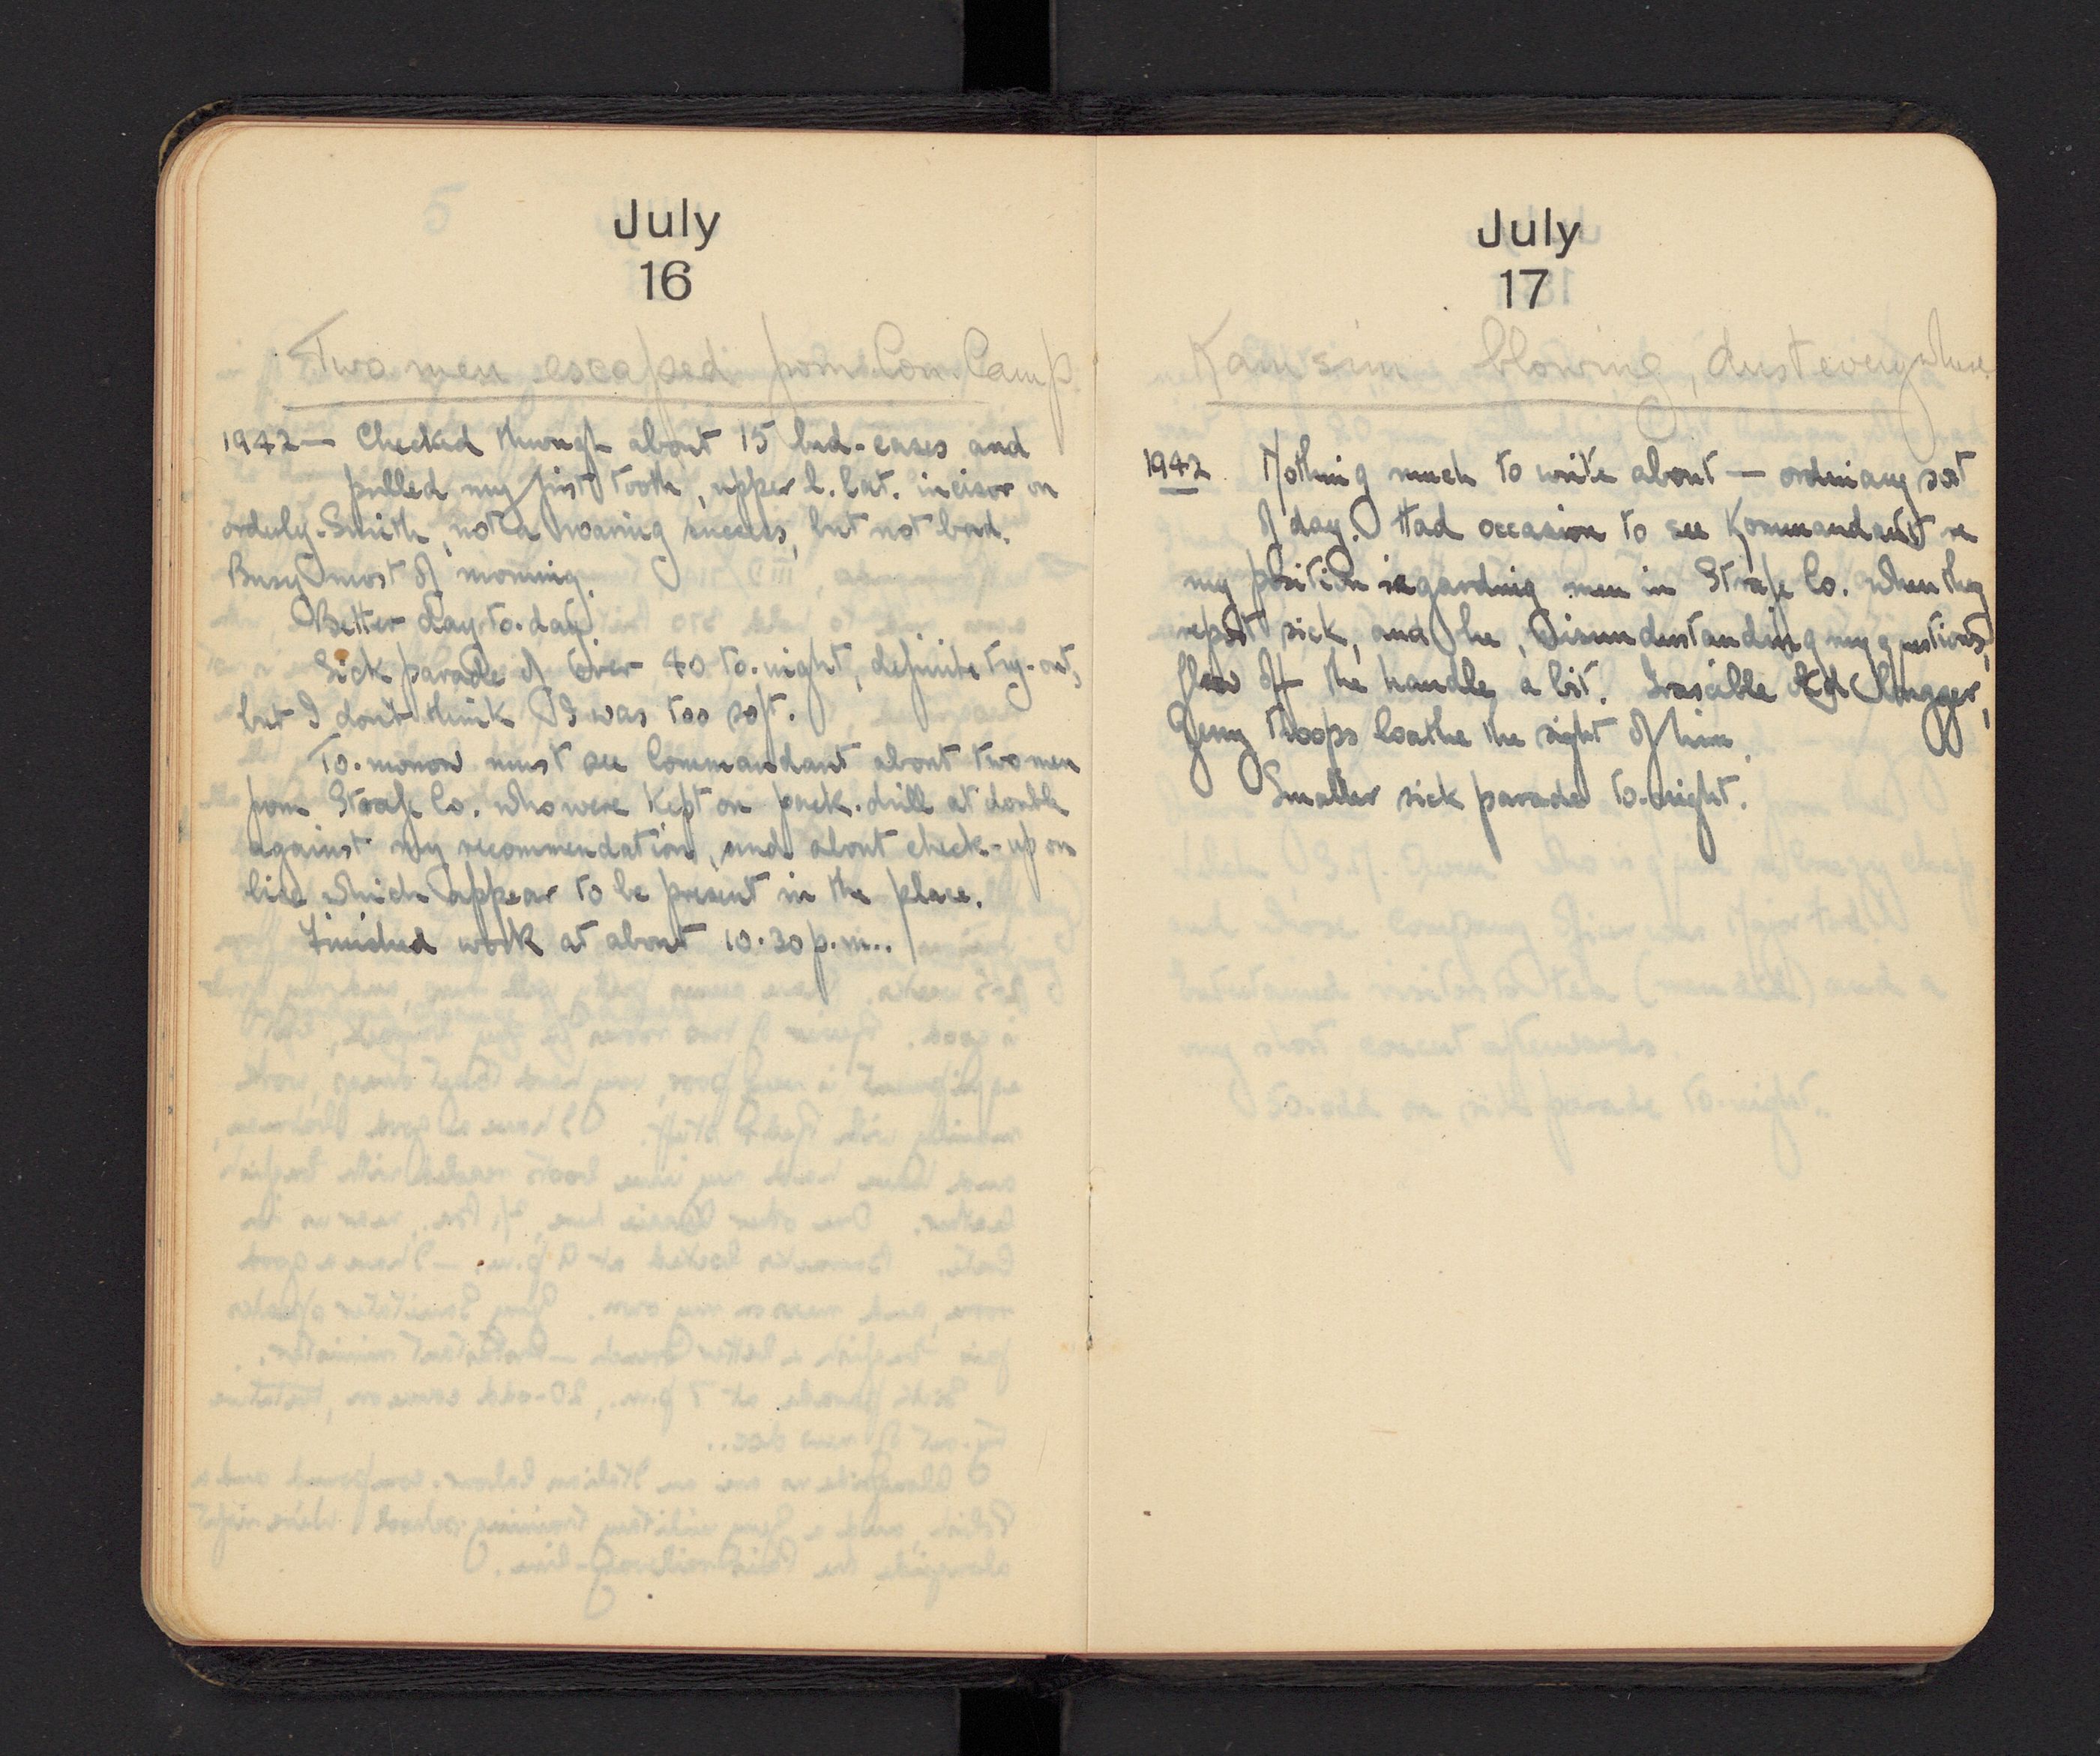 July
16
Two men escaped from Con. Camp.
1942 — Checked through about 15 bed-cases and
pulled my first tooth, upper l. lat. incisor on
orderly Smith, not a roaring success, but not bad.
Busy most of morning.
Better day to-day.
Sick parade of over 40 to-night, definite try-out,
but I don't think I was too soft.
To-morrow must see Commandant about two men
from Strafe Co. who were kept on pack-drill at double
against my recommendation, and about check-up on
lice which appear to be present in the place.
Finished work at about 10.30 p.m..
July
17
Kamsin blowing, dust everywhere
1942 Nothing much to write about — ordinary sort
of day. Had occasion to see Kommandant re
my position regarding men in Strafe Co. when they
report sick, and he, misunderstanding my questions,
flew off the handle a bit. Irascible old bugger,
Jerry troops loathe the sight of him.
Smaller sick parade to-night.